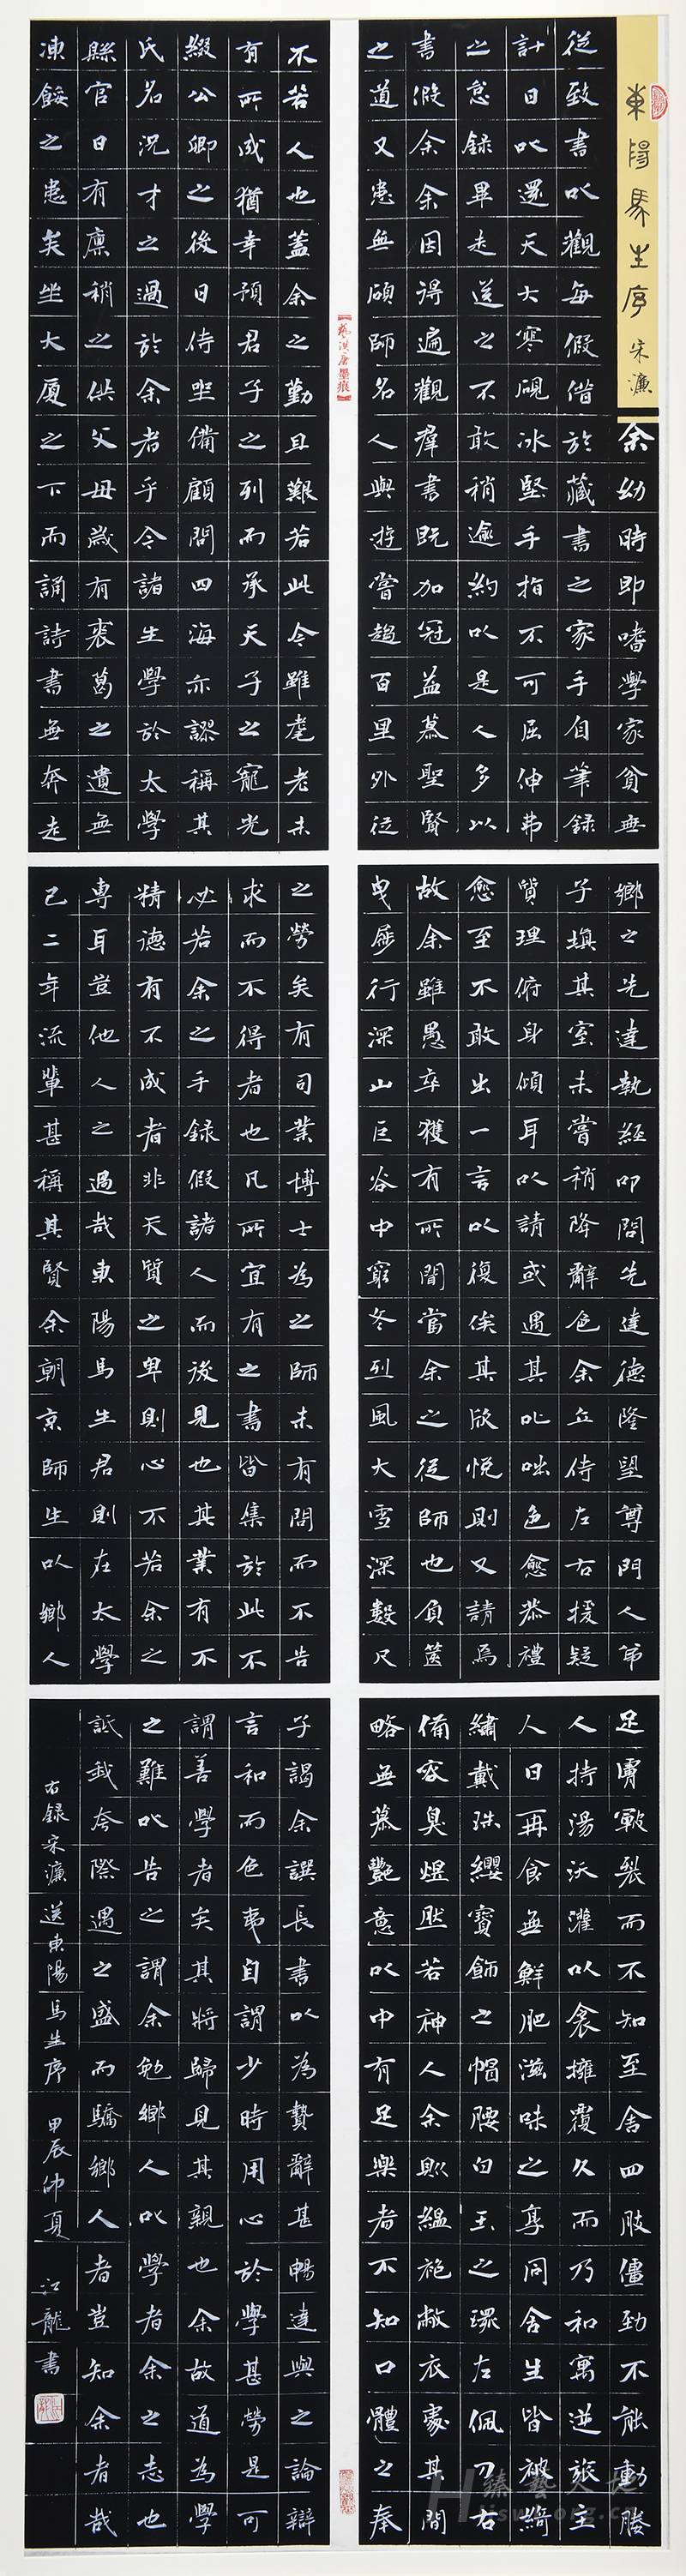 東陽馬生序 宋濂
余幼時即嗜學家貧無
從致書以觀每假借於藏書之家手自筆錄
計日以還天大寒硯冰堅手指不可屈伸弗
之怠錄畢走送之不敢稍逾約以是人多以
書假余余因得遍觀羣書既加冠益慕聖賢
之道又患無碩師名人與遊嘗趨百里外從
鄉之先達執經叩問先達德隆望尊門人弟
子填其室未嘗稍降辭色余立侍左右援疑
質理俯身傾耳以請或遇其叱咄色愈恭禮
愈至不敢出一言以復俟其欣悅則又請焉
故余雖愚卒獲有所聞當余之從師也負篋
曳屣行深山巨谷中窮冬烈風大雪深數尺
足膚皸裂而不知至舍四肢僵勁不能動媵
人持湯沃灌以衾擁覆久而乃和寓逆旅主
人日再食無鮮肥滋味之享同舍生皆被綺
繡戴珠纓寶飾之帽腰白玉之環左佩刀右
備容臭煜然若神人余則縕袍敝衣處其間
略無慕艷意以中有足樂者不知口體之奉
不若人也蓋余之勤且艱若此今雖耄老未
有所成猶幸預君子之列而承天子之寵光
綴公卿之後日侍坐備顧問四海亦謬稱其
氏名況才之過於余者乎今諸生學於太學
縣官日有廩稍之供父母歲有裘葛之遺無
凍餒之患矣坐大廈之下而誦詩書無奔走
之勞矣有司業博士為之師未有問而不告
求而不得者也凡所宜有之書皆集於此不
必若余之手錄假諸人而後見也其業有不
精德有不成者非天質之卑則心不若余之
專耳豈他人之過哉東陽馬生君則在太學
已二年流輩甚稱其賢余朝京師生以鄉人
子謁余譔長書以為贄辭甚暢達與之論辯
言和而色夷自謂少時用心於學甚勞是可
謂善學者矣其將歸見其親也余故道為學
之難以告之謂余勉鄉人以學者余之志也
詆我夸際遇之盛而驕鄉人者豈知余者哉
右錄宋濂送東陽馬生序 甲辰仲夏 江龍書